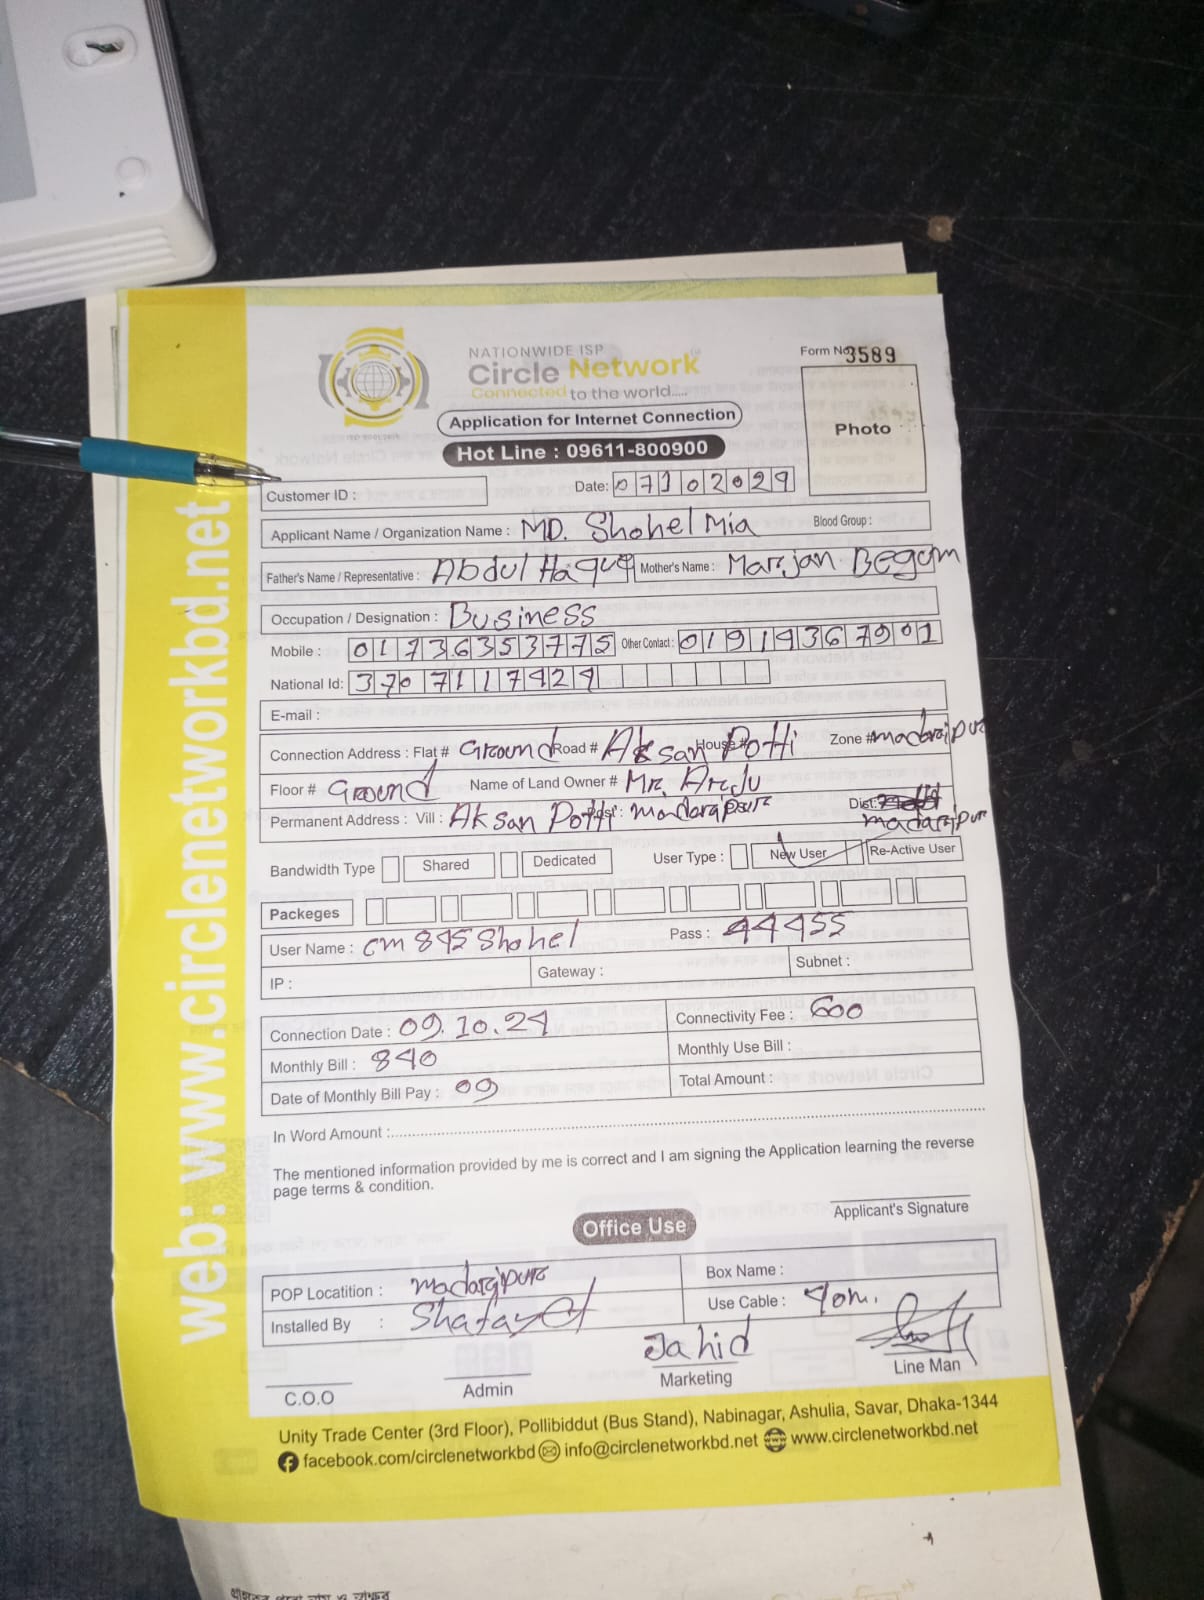 NATIONWIDE ISP
Circle Network
Connected to the world.....
Form No 3589
Application for Internet Connection
Photo
Hot Line : 09611-800900
Customer ID :
Date: 07102024
Applicant Name / Organization Name : MD. Shohel Mia Blood Group :
Father's Name / Representative : Abdul Haque Mother's Name : Marjan Begum
Occupation / Designation : Business
Mobile : 01736353775 Other Contact : 01919367901
National Id: 3707117424
E-mail :
Connection Address : Flat # Ground Road # Aksan Potti House # Zone # madaripur
Floor # Ground Name of Land Owner #
Permanent Address : Vill : Aksan Potti madaripur Dist: madaripur
Bandwidth Type Shared Dedicated User Type : New User Re-Active User
Packeges
User Name : cm845Shohel Pass : 44455
IP : Gateway : Subnet :
Connection Date : 09.10.24 Connectivity Fee : 600
Monthly Bill : 840 Monthly Use Bill :
Date of Monthly Bill Pay : 09 Total Amount :
In Word Amount :
The mentioned information provided by me is correct and I am signing the Application learning the reverse
page terms & condition.
Applicant's Signature
Office Use
POP Locatition : madaripur Box Name :
Installed By : Shafayet Use Cable : 40m.
Jahid
C.O.O Admin Marketing Line Man
Unity Trade Center (3rd Floor), Pollibiddut (Bus Stand), Nabinagar, Ashulia, Savar, Dhaka-1344
facebook.com/circlenetworkbd info@circlenetworkbd.net www.circlenetworkbd.net
web: www.circlenetworkbd.net